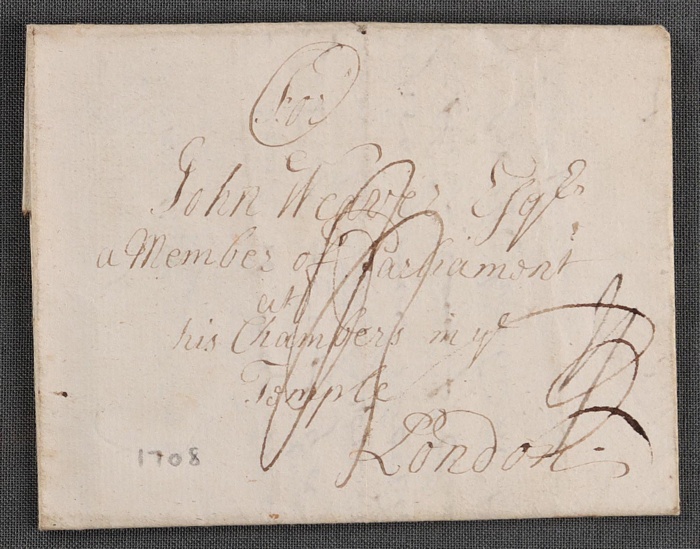 For
John Weaver Esqr.
a Member of Parliament
at
his Chambers in ye
Temple
London.
1708